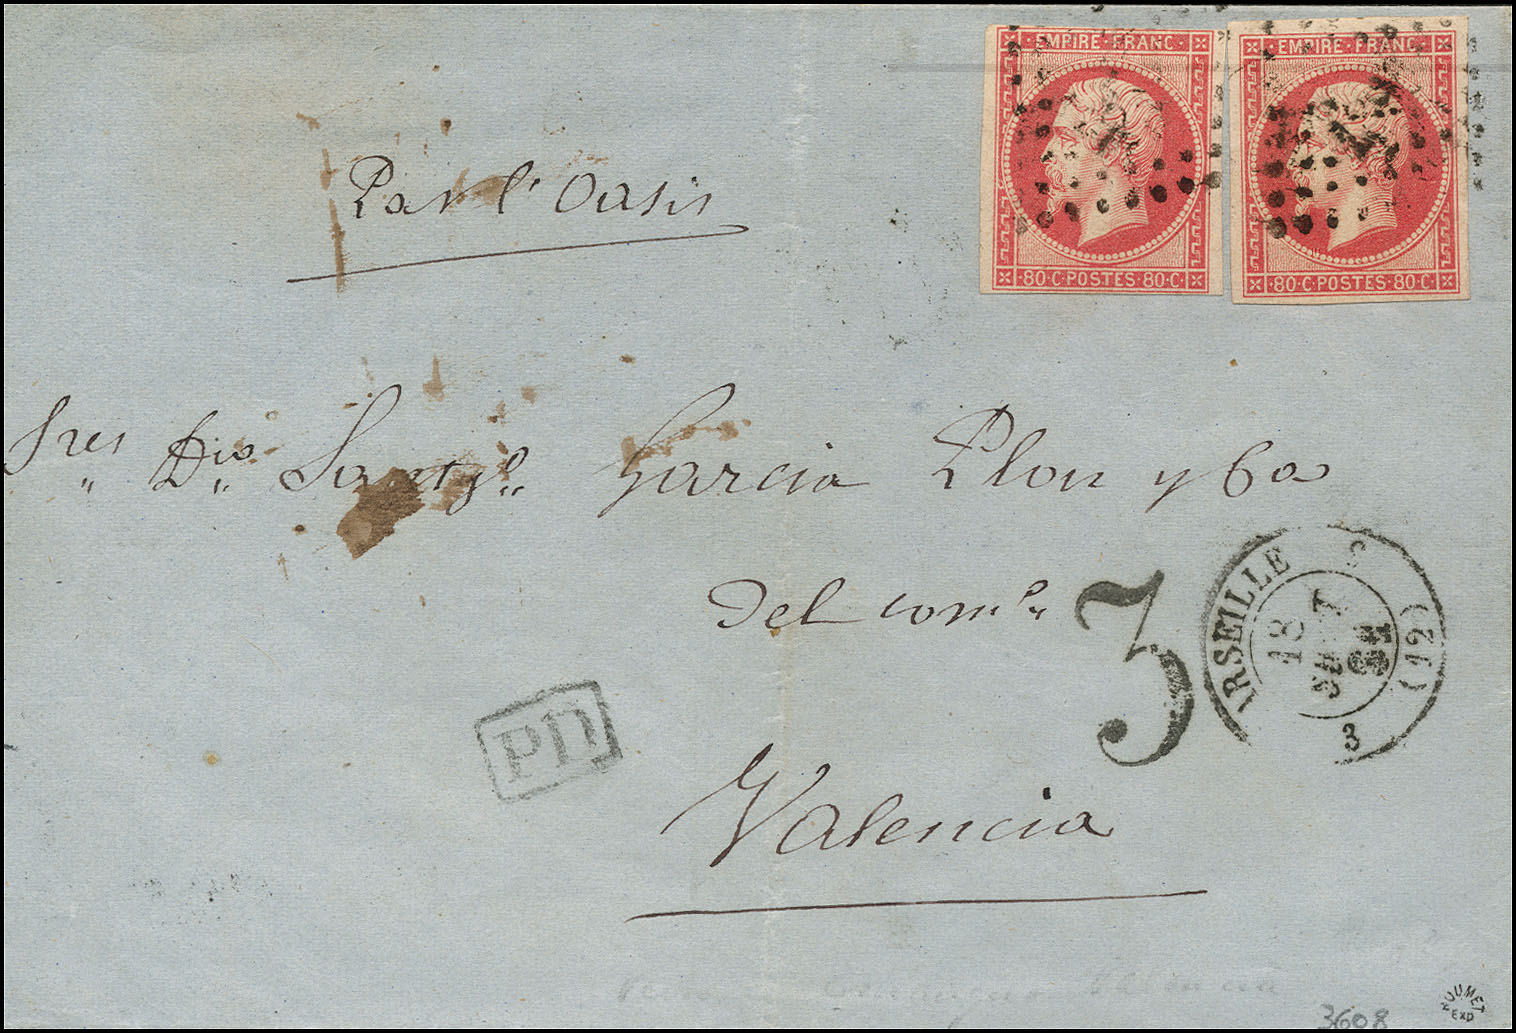 EMPIRE · FRANC · EMPIRE · FRANC ·
80 · C · POSTES · 80 · C · 80 · C · POSTES · 80 · C ·
Par l'Oasis
Sres Garcia Plon y Ca
Del comº
ARSEILLE (12)
18
SEPT
3
3
PD
Valencia
3608
ROUMET
EXP